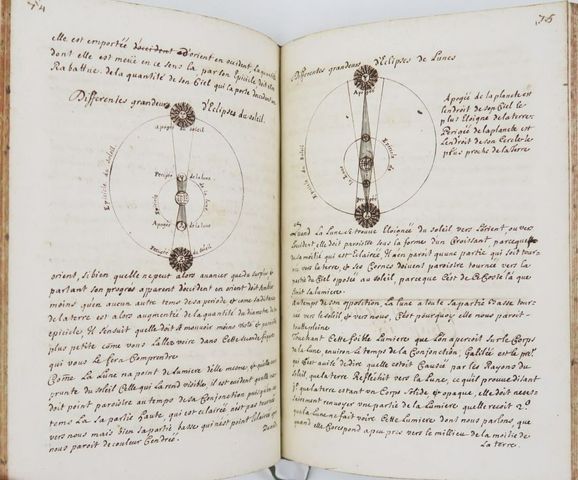 74
elle est emportée d'orient en occident la quantité
dont elle est menée en ce sens la par son Epicicle doit etre
Rabattue de la quantité de son Ciel qui la porte
Differentes grandeurs d'Eclipses du soleil.
Apogée du soleil
Epicicle du Soleil
Perigée de la lune
Epicicle de la lune
Apogée de la lune
Perigée du Soleil
orient, si bien quelle ne peut alors avancer que du surplus &
partant son progres apparent d'occident en orient doit
moins qu'en aucun autre tems de sa periode & come sa distance
de la terre est alors augmentée de la quantité du diametre de son
epicicle Il sensuit quelle doit se mouvoir moins viste & paroistre
plus petite come vous l'allez voire dans Cette figure
qui vous le fera Comprendre
Come La Lune na point de lumiere delle mesme, & quelle em-
prunte du soleil Celle qui La rend visible, il est evident quelle ne
doit point paroistre au tems de sa Conjonction puisqu'en ce
tems La Sa partie haute, qui est eclairée n'est pas tournée
vers nous mais bien sa partie basse qui nest point Eclairée &
nous paroit de couleur Cendrée.
75
Differentes grandeurs d'Eclipses de Lunes
Apogée
Epicicle du Soleil
Perigée
Apogée de la planete est
Lendroit de son Ciel le
plus Eloigné de la terre.
Perigée de la planete est
Lendroit de son Cercle le
plus proche de la Terre
Quand La Lune se trouve Eloignée du soleil vers Lorient, ou vers
Loccident, elle doit paroistre sous la forme d'un Croissant, parceque
de sa moitié qui est Eclairée Il n'en paroit qu'une partie qui soit tour-
née vers la terre, & ses Cornes doivent paroistre tournées vers la
partie du Ciel opposé au soleil, parceque C'est de Ce Costé la que
finit la lumiere.
Au tems de son opposition La Lune a toute sa partie Basse tour-
née vers le soleil, & vers nous, C'est pourquoy elle nous paroit
toutte pleine
Touchant Cette foible Lumiere que L'on aperçoit sur le Corps
de la lune environ le tems de la Conjonction, Galilée est le pre.r
qui Esté avité de dire quelle estoit Causée par les Rayons du
soleil, que la terre Reflechit vers la Lune, ce quil prouve disant
que la terre estant un Corps solide, & opaque, elle doit neces-
sairement renvoyer une partie de la Lumiere quelle recoit 2.º
que la Lune ne fait voire Cette Lumiere dont nous parlons, que
quand elle Corespond a peu pres vers le millieu de la moitié de
La terre.